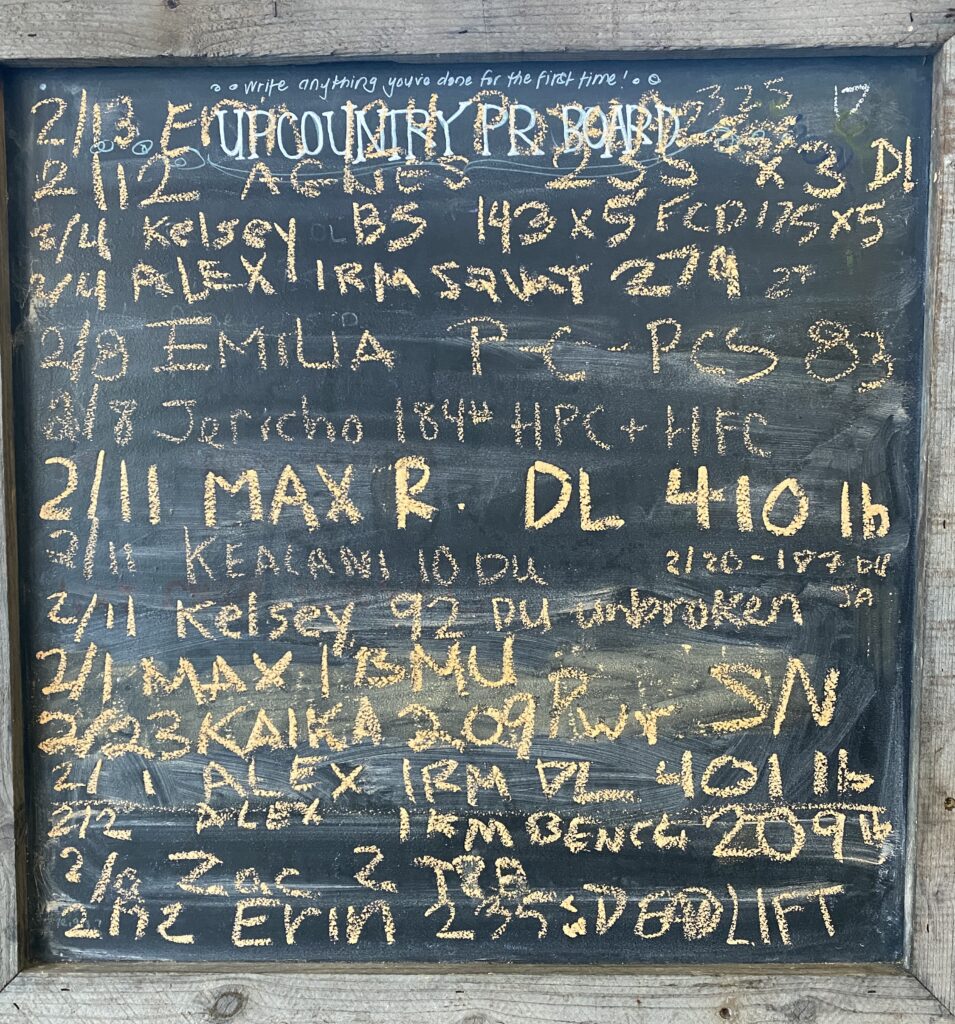 write anything you've done for the first time!
UPCOUNTRY PR BOARD
2/13 325
2/12 AGNES 235 x 3 DL
3/4 Kelsey BS 143 x 5 FCD 175 x 5
ALEX 1RM SQUAT 279
2/8 EMILIA P-C-PCS 83
2/8 Jericho 184# HPC + HFC
2/11 MAX R. DL 410 lb
2/11 KEALANI 10 DU 2/20-187 DU
JA
2/11 Kelsey 92 DU unbroken
2/1 MAX 1 BMU
2/23 KAIKA 209 Pwr SN
2/1 ALEX 1RM DL 401 lb
2/2 ALEX 1RM BENCH 209 lb
Zac 2
2/12 Erin 235 DEADLIFT